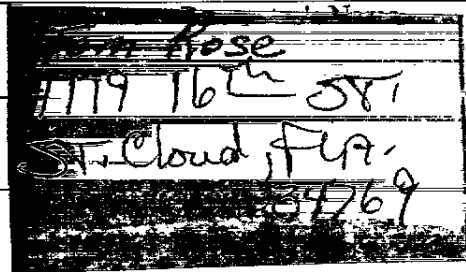 Rose
16th ST.
ST. Cloud, FLA.
34769